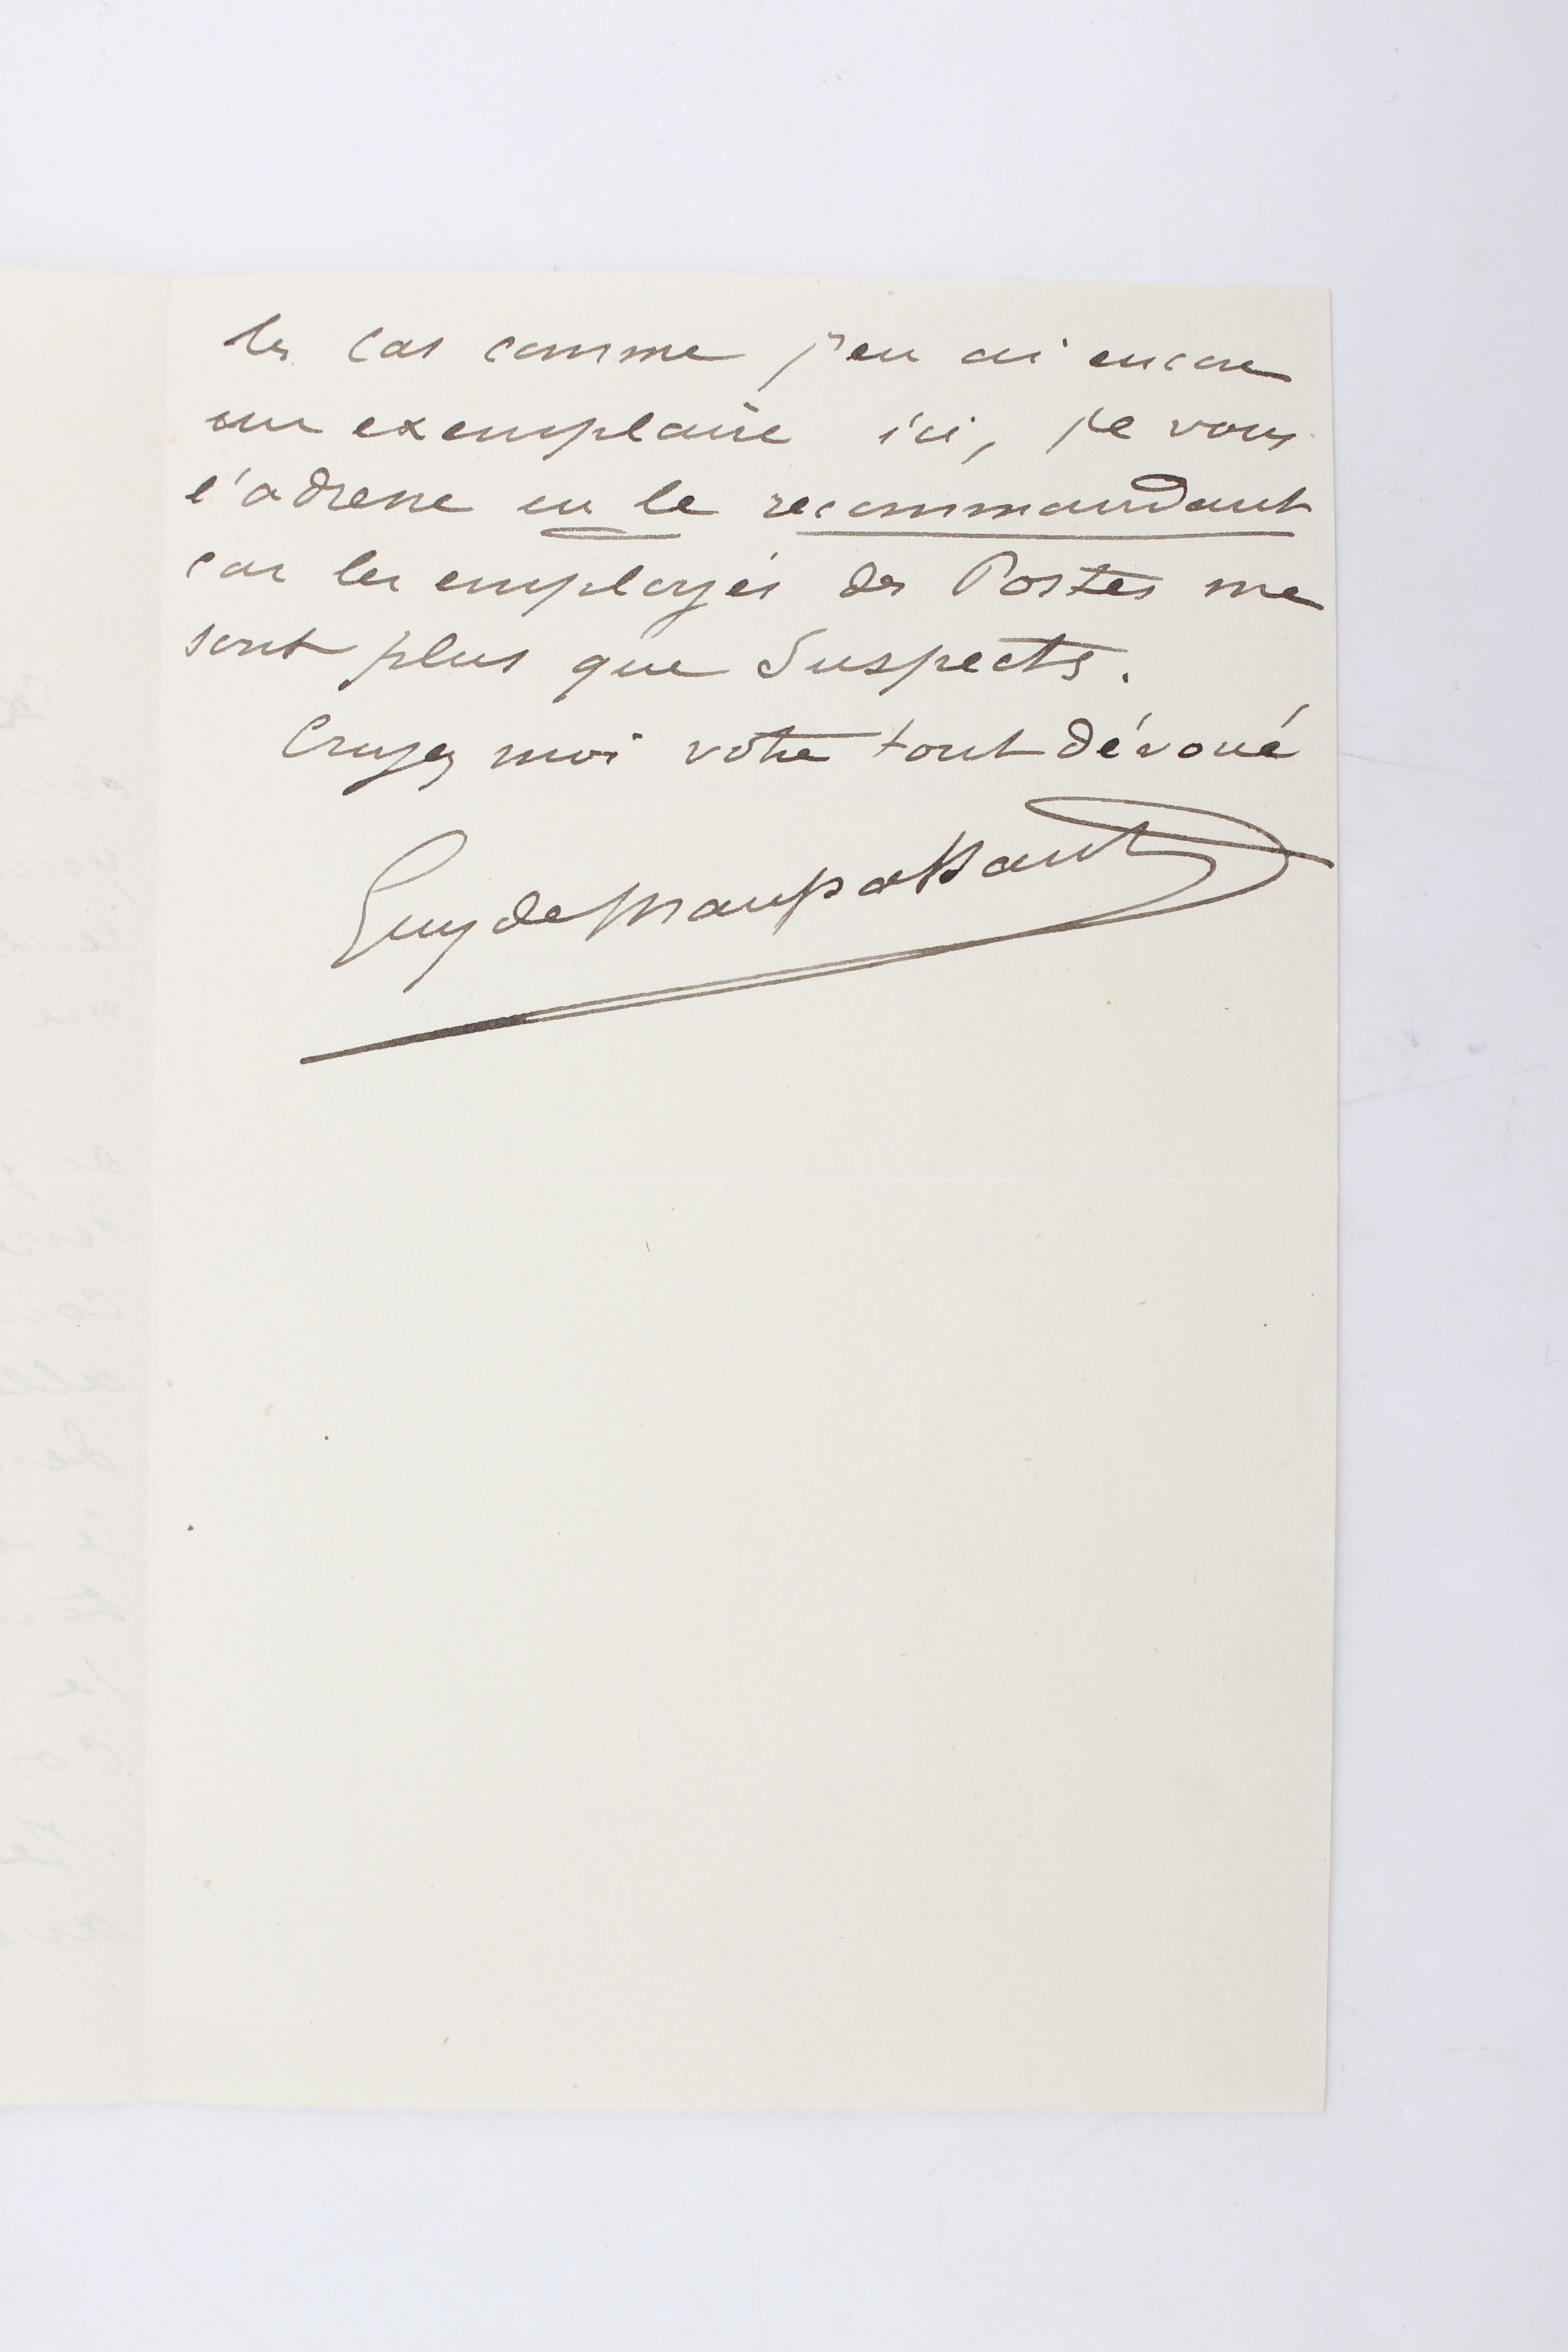 les cas comme j'en ai encore
un exemplaire ici, je vous
l'adresse en le recommandant
car les employés des Postes me
sont plus que suspects.
Croyez moi votre tout dévoué
Guy de Maupassant